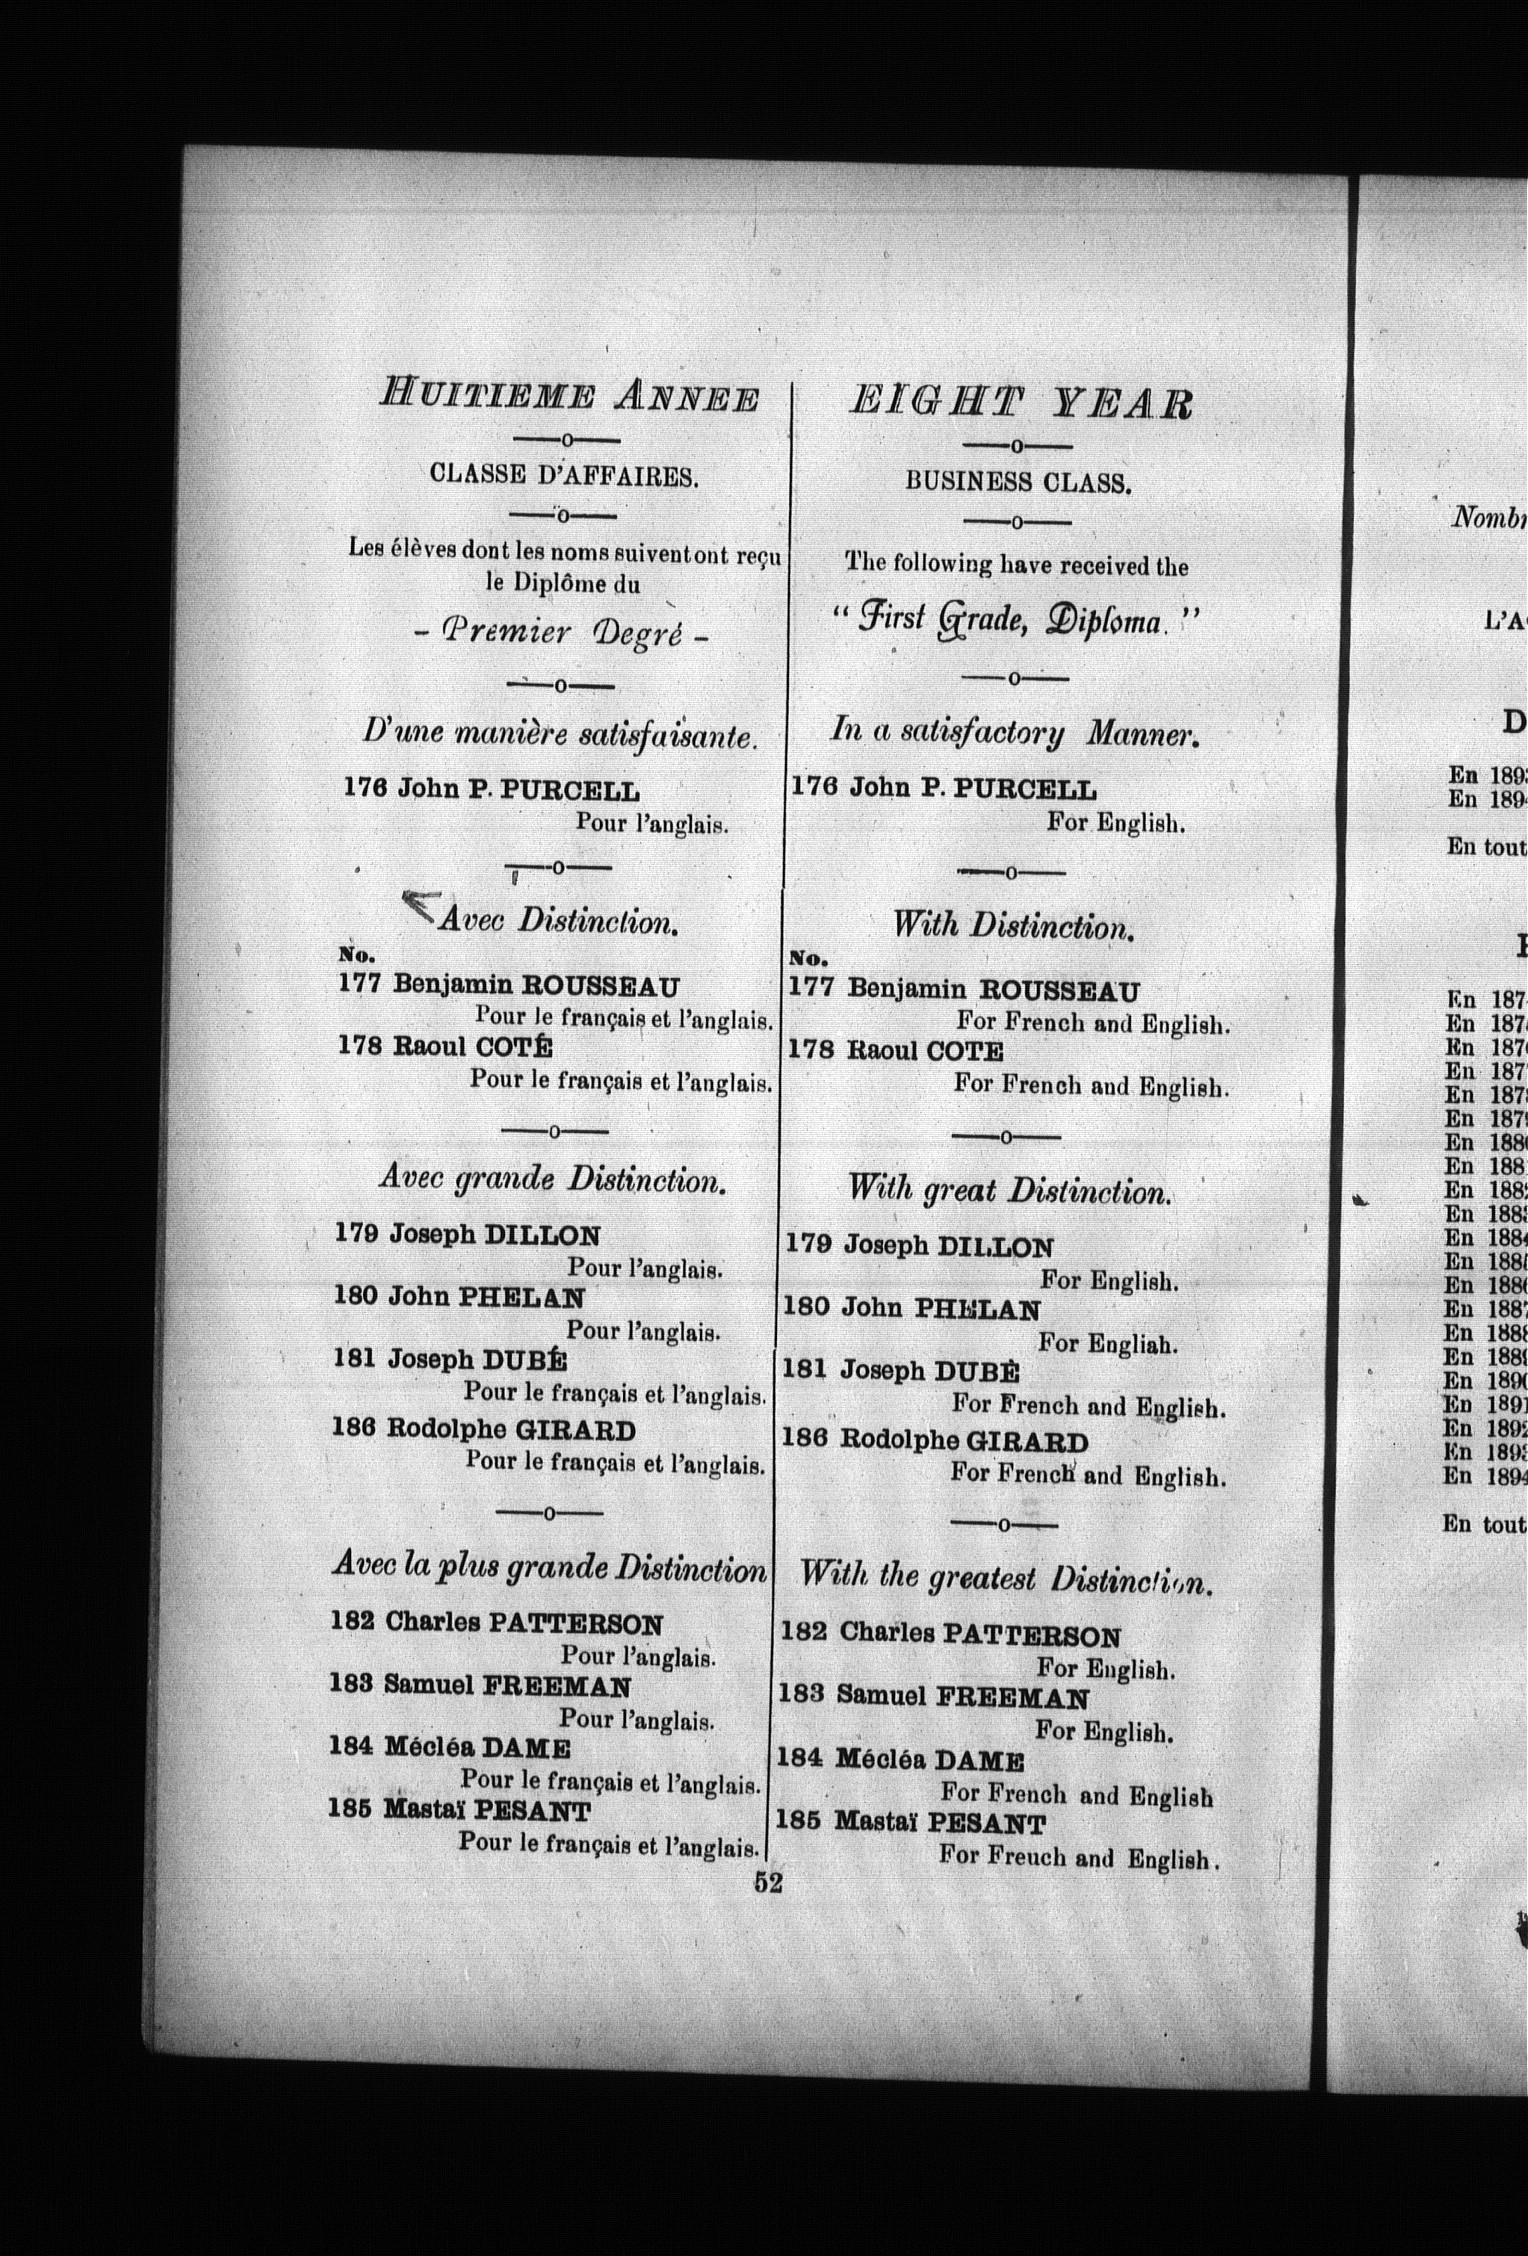 HUITIEME ANNEE
—o—
CLASSE D'AFFAIRES.
—o—
Les élèves dont les noms suivent ont reçu
le Diplôme du
- Premier Degré -
—o—
D'une manière satisfaisante.
176 John P. PURCELL
Pour l'anglais.
—o—
Avec Distinction.
No.
177 Benjamin ROUSSEAU
Pour le français et l'anglais.
178 Raoul COTÉ
Pour le français et l'anglais.
—o—
Avec grande Distinction.
179 Joseph DILLON
Pour l'anglais.
180 John PHELAN
Pour l'anglais.
181 Joseph DUBÉ
Pour le français et l'anglais.
186 Rodolphe GIRARD
Pour le français et l'anglais.
—o—
Avec la plus grande Distinction
182 Charles PATTERSON
Pour l'anglais.
183 Samuel FREEMAN
Pour l'anglais.
184 Mécléa DAME
Pour le français et l'anglais.
185 Mastaï PESANT
Pour le français et l'anglais.
EIGHT YEAR
—o—
BUSINESS CLASS.
—o—
The following have received the
“ First Grade, Diploma. ”
—o—
In a satisfactory Manner.
176 John P. PURCELL
For English.
—o—
With Distinction.
No.
177 Benjamin ROUSSEAU
For French and English.
178 Raoul COTE
For French and English.
—o—
With great Distinction.
179 Joseph DILLON
For English.
180 John PHELAN
For Engliah.
181 Joseph DUBÈ
For French and English.
186 Rodolphe GIRARD
For French and English.
—o—
With the greatest Distinction.
182 Charles PATTERSON
For English.
183 Samuel FREEMAN
For English.
184 Mécléa DAME
For French and English
185 Mastaï PESANT
For Freuch and English.
52
L'A
D
En 189
En 189
En tout
En 187
En 187
En 187
En 187
En 187
En 187
En 188
En 188
En 188
En 188
En 188
En 188
En 188
En 188
En 188
En 188
En 189
En 189
En 189
En 189
En 189
En tout